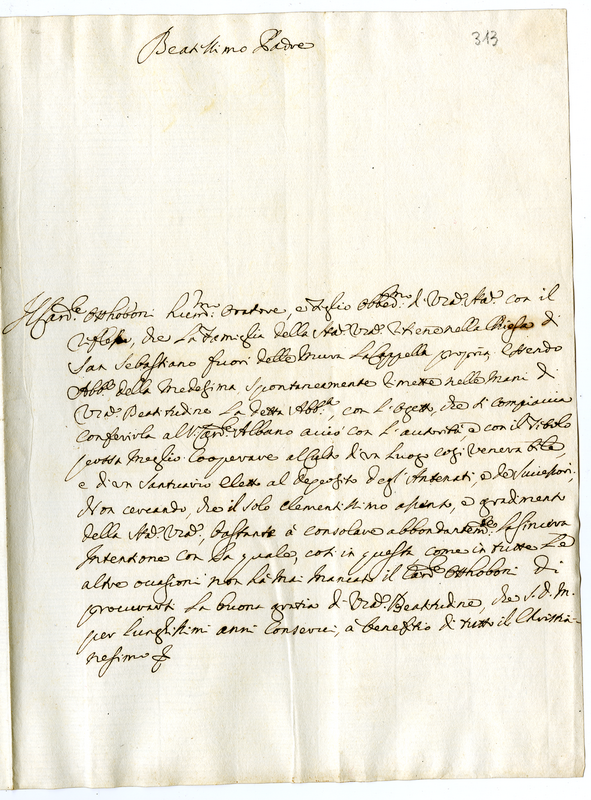 313
Beatissimo Padre
Il Card.le Otthoboni humil.mo Oratore, e figlio Obbed.mo di V.ra S.tà con il
riflesso, che la famiglia della S.tà V.ra tiene nella Chiesa di
San Sebastiano fuori delle Mura la Cappella propria, essendo
Abb.e della Medesima spontaneamente rimette nelle Mani di
V.ra Beatitudine la detta Abb.ia, con l'ogetto, che si compiaccia
conferirla al Card.le Albano acciò con l'autorità, e con il Titolo
possa meglio cooperare al Culto d'un Luogo così venerabile,
e d'un Santuario eletto al deposito degl'Antenati, e de Successori;
Non cercando, che il solo clementissimo assenso, e gradimento
della S.tà V.ra, bastante à consolare abbondantem.te la sincera
Intentione con la quale, così in questa come in tutte le
altre occasioni non hà mai mancato il Card.le Otthoboni di
procurarsi la buona gratia di V.ra Beatitudine, che S. D. M.
per lunghissimi anni conservi, à benefitio di tutto il Christia-
nesimo